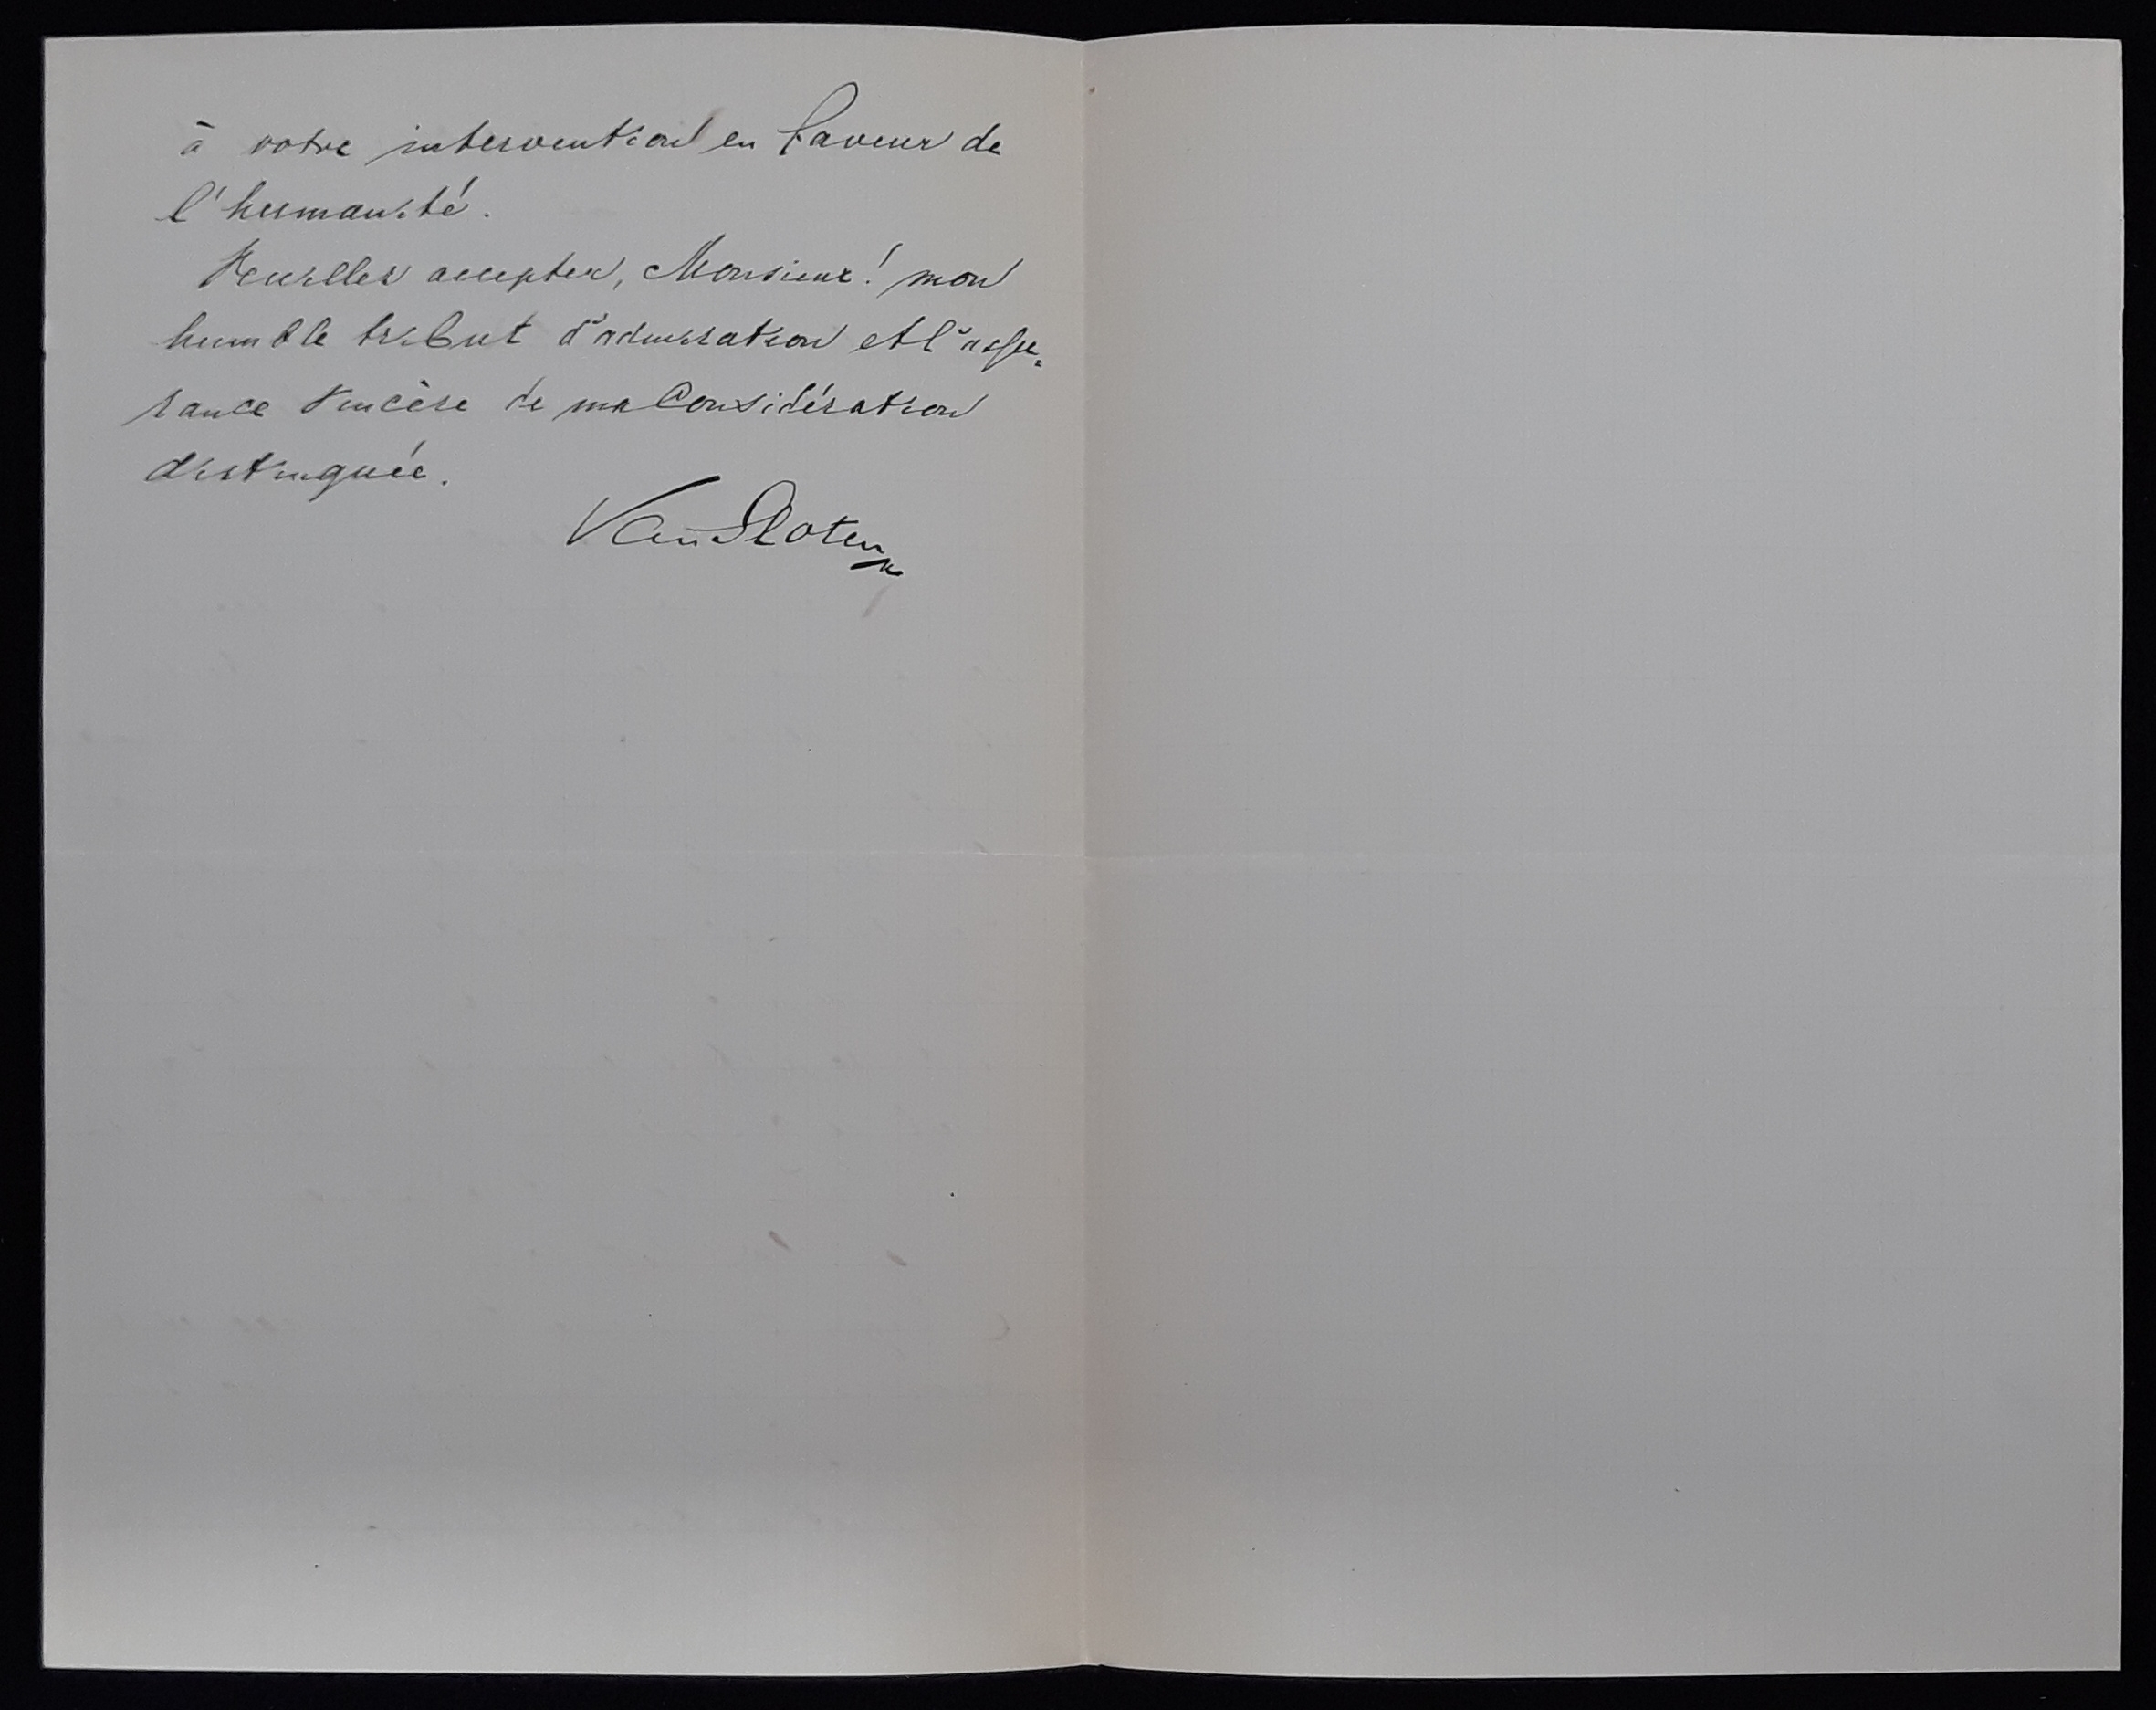 à votre intervention en faveur de
l'humanité.
Veuillez accepter, Monsieur! mon
humble tribut d'admiration et l'assu-
rance sincère de ma Considération
distinguée.
Van Sloten